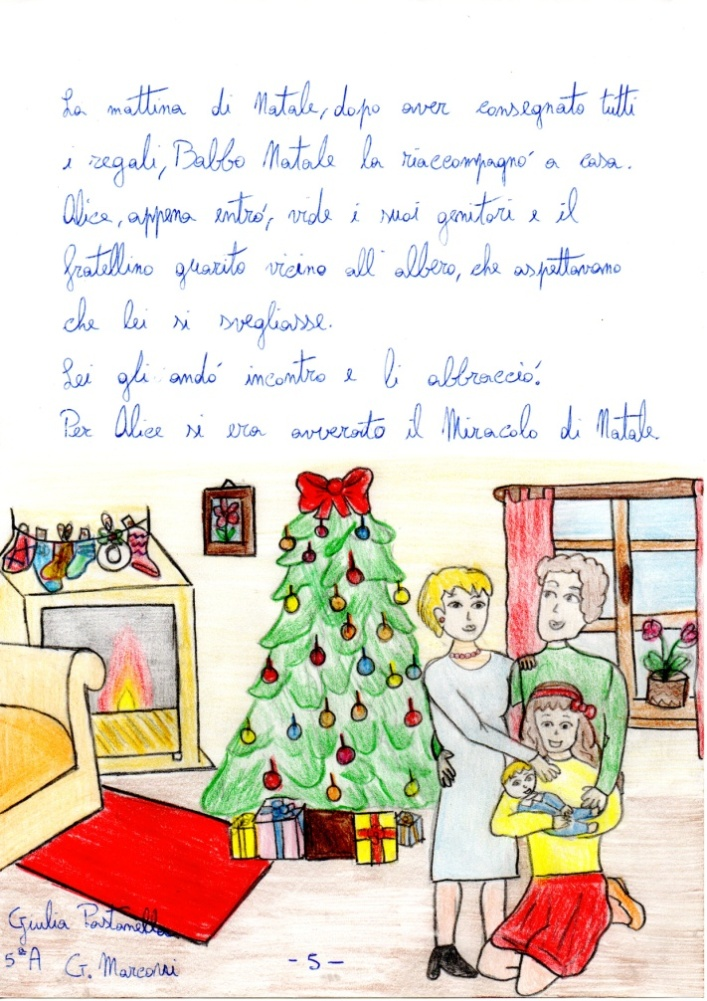 La mattina di Natale, dopo aver consegnato tutti
i regali, Babbo Natale la riaccompagnó a casa.
Alice, appena entró, vide i suoi genitori e il
fratellino guarito vicino all'albero, che aspettavano
che lei si svegliasse.
Lei gli andó incontro e li abbracció.
Per Alice si era avverato il Miracolo di Natale.
Giulia Pastanella
5ªA G. Marconi
- 5 -